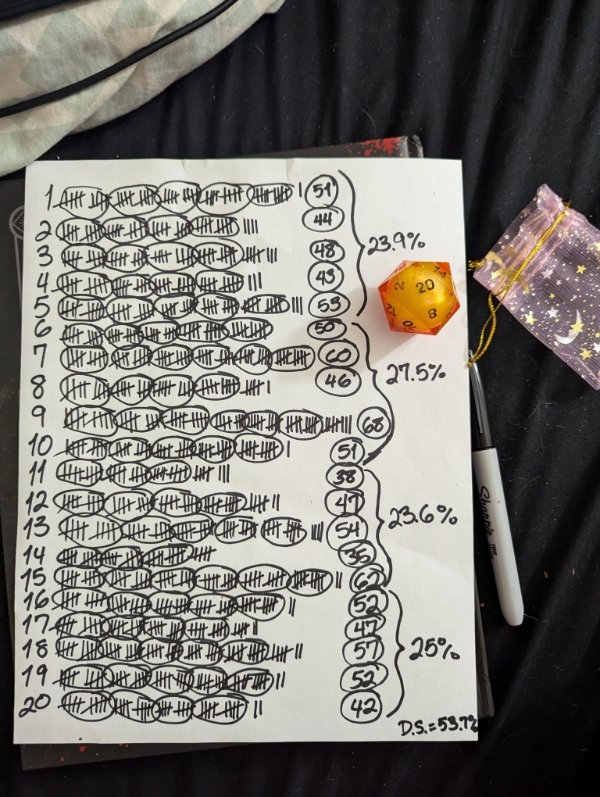 1 51
2 44
3 48
4 43
5 53
23.9%
6 50
7 60
8 46
9 68
10 51
27.5%
11 38
12 47
13 54
14 35
15 62
23.6%
16 52
17 47
18 57
19 52
20 42
25%
D.S.=53.7%
20
8
20
Sharpie